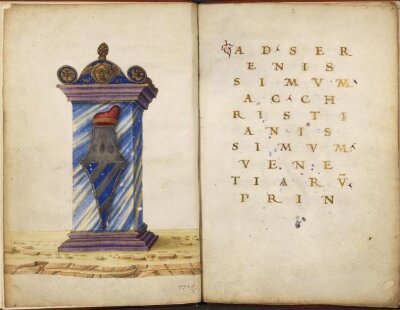 AD SER
ENIS
SIMVM
ACCH
RISTI
ANIS
SIMVM
VENE
TIARV̄
PRIN